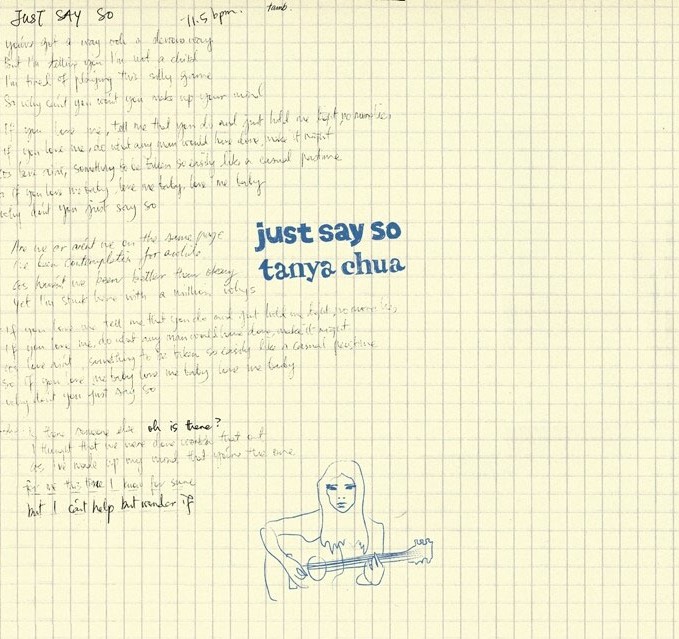 JUST SAY SO
-11.5 bpm.
tamb.
you've got a way ooh a devious way
But I'm telling you I'm not a child
I'm tired of playing this silly game
So why can't you won't you make up your mind
If you love me, tell me that you do, and just hold me tight, no worries,
if you love me, do what any man would have done, make it right
cos love ain't, something to be taken so easily like a casual pastime
so if you love me baby, love me baby, love me baby
why don't you just say so
Are we or aren't we on the same page
I've been contemplating for awhile
cos haven't we been better than okay
Yet I'm stuck here with a million whys
If you love me tell me that you do and just hold me tight, no worries,
If you love me, do what any man would have done, make it right
cos love ain't, something to be taken so easily like a casual pastime
so if you love me baby love me baby love me baby
why don't you just say so
just say so
tanya chua
someone else oh is there?
I thought that we were done workin that out
cos I've made up my mind that you're the one
for me this time I know for sure
but I can't help but wonder if